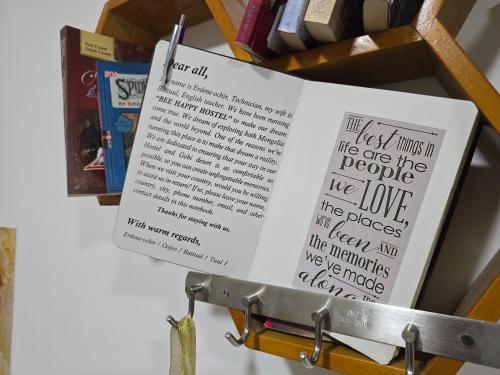 Dear all,
name is Erdene-ochir, Technician, my wife is
Battuul, English teacher. We have been running
"BEE HAPPY HOSTEL" to make our dream
come true. We dream of exploring both Mongolia
and the world beyond. One of the reasons we're
running this place is to make that dream a reality.
We are dedicated to ensuring that your stay in
Hostel and Gobi desert is as comfortable as
possible, so you can create unforgettable memories.
When we visit your country, would you be willing
to assist us in return? If so, please leave your name,
country, city, phone number, email, and other
contact details in this notebook.
Thanks for staying with us.
With warm regards,
Erdene-ochir / Oojoo / Battuul / Tuul /
THE best things in
life are the
people
we LOVE,
the places
we've been AND
the memories
we've made
along the